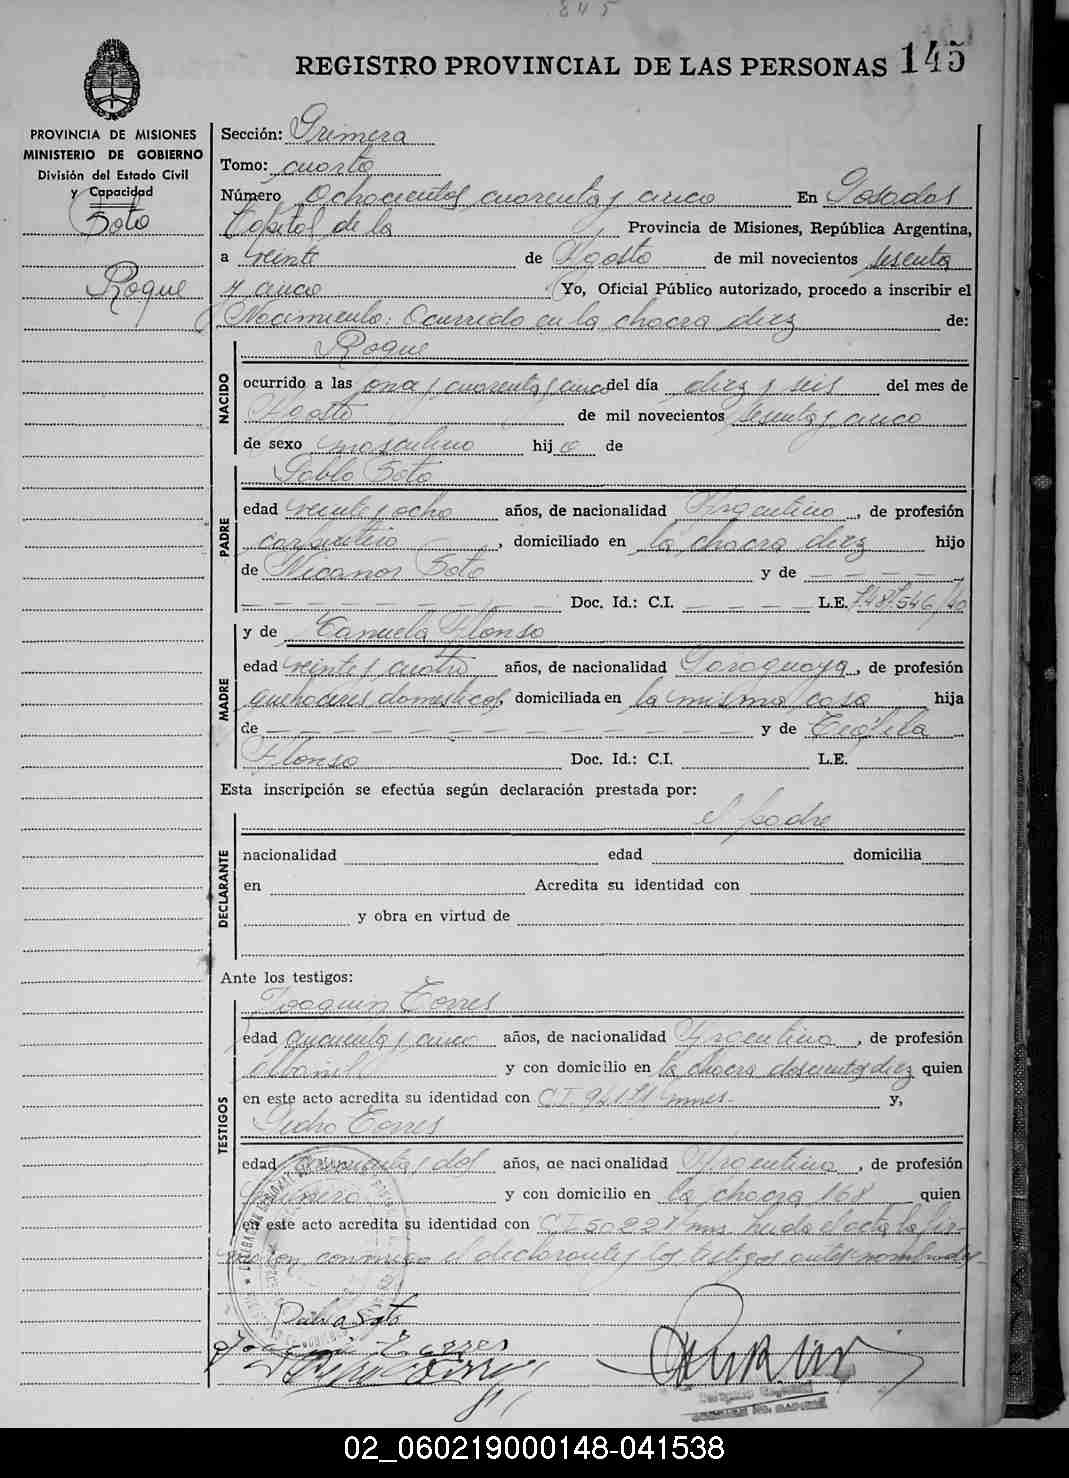 845
REGISTRO PROVINCIAL DE LAS PERSONAS 145
PROVINCIA DE MISIONES
MINISTERIO DE GOBIERNO
División del Estado Civil
y Capacidad
Soto
Roque
Sección: Primera
Tomo: cuarto
Número Ochocientos cuarenta y cinco En Posadas
Capital de la Provincia de Misiones, República Argentina,
a veinte de Agosto de mil novecientos sesenta
y cinco Yo, Oficial Público autorizado, procedo a inscribir el
Nacimiento: Ocurrido en la chacra diez de:
NACIDO
Roque
ocurrido a las una y cuarenta y cinco del día diez y seis del mes de
Agosto de mil novecientos sesenta y cinco
de sexo masculino hijo de
Pablo Soto
PADRE
edad veinte y ocho años, de nacionalidad Argentino, de profesión
carpintero, domiciliado en la chacra diez hijo
de Nicanor Soto y de
Doc. Id.: C.I. L.E. 7.481.546/40
y de Manuela Alonso
MADRE
edad veinte y cuatro años, de nacionalidad Paraguaya, de profesión
quehaceres domesticos, domiciliada en la misma casa hija
de y de Teófila
Alonso Doc. Id.: C.I. L.E.
Esta inscripción se efectúa según declaración prestada por:
el padre
DECLARANTE
nacionalidad edad domicilia
en Acredita su identidad con
y obra en virtud de
Ante los testigos:
Joaquin Torres
TESTIGOS
edad cuarenta y cinco años, de nacionalidad Argentino, de profesión
albañil y con domicilio en la chacra doscientos diez quien
en este acto acredita su identidad con C.I. mnes. y,
Pedro Torres
edad y dos años, de nacionalidad Argentino, de profesión
y con domicilio en la chacra 168 quien
en este acto acredita su identidad con C.I. 50227 mns. leida el acta la fir-
maron conmigo el declarante y los testigos antes nombrados
Pablo Soto
Torres
02_060219000148-041538